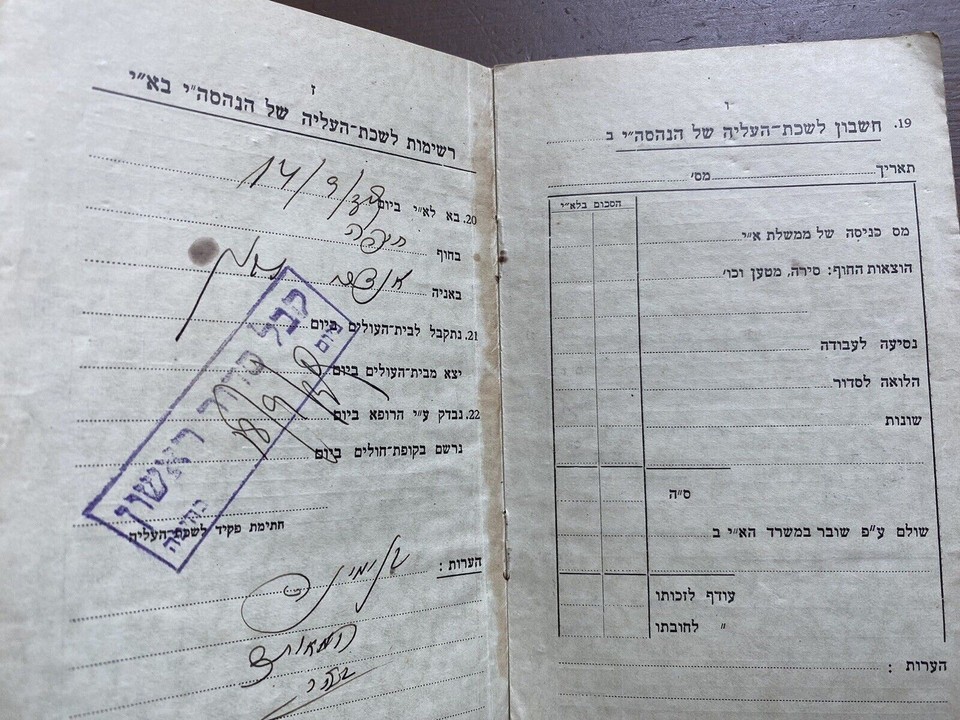 ו
19. חשבון לשכת-העליה של הנהסה״י ב
תאריך מס׳
הסכום בלא״י
מס כניסה של ממשלת א״י
הוצאות החוף: סירה, מטען וכו׳
נסיעה לעבודה
הלואה לסדור
שונות
ס״ה
שולם ע״פ שובר במשרד הא״י ב
עודף לזכותו
״ לחובתו
הערות :
ז
רשימות לשכת-העליה של הנהסה״י בא״י
20. בא לא״י ביום 14/9/
בחוף חיפה
באניה
21. נתקבל לבית-העולים ביום
יצא מבית-העולים ביום
22. נבדק ע״י הרופא ביום
נרשם בקופת-חולים ביום
קבל סדור ראשון
ביום
בחיפה
חתימת פקיד לשכת-העליה
הערות :